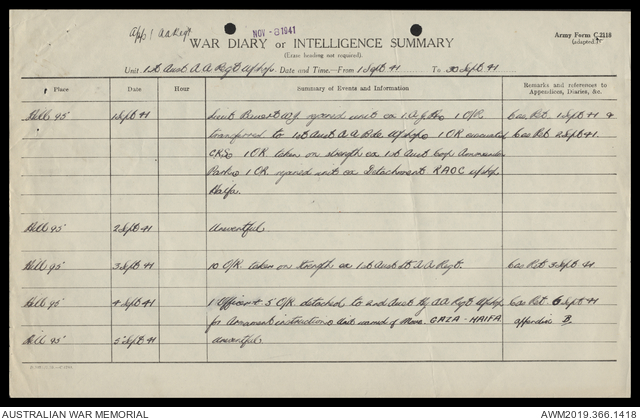 App 1 AA Regt
NOV - 8 1941
Army Form C.2118
(adapted.)
WAR DIARY or INTELLIGENCE SUMMARY
(Erase heading not required).
Unit 1st Aust A A Regt W/shop. Date and Time—From 1 Sept 41 To 30 Sept 41.
Place Date Hour Summary of Events and Information Remarks and references to Appendices, Diaries, &c.
Hill 95 1 Sept 41 Lieut W J rejoined unit ex 1 A G H 1 O/R Cas. Ret. 1 Sept 41 &
transferred to 1st Aust A A Bde W/shop 1 OR evacuated Cas Ret 2 Sept 41.
CRS 1 OR taken on strength ex 1st Aust Corp Ammunition
Park 1 OR rejoined unit ex Detachment RAOC W/shop
Haifa.
Hill 95 2 Sept 41 Uneventful.
Hill 95 3 Sept 41 10 O/R taken on strength ex 1st Aust A A Regt. Cas Ret 3 Sept 41.
Hill 95 4 Sept 41 1 Officer + 5 O/R detached to 2nd Aust Hy AA Regt W/shop Cas Ret 6 Sept 41
for Armament instruction Unit warned of Move. GAZA - HAIFA appendix B.
Hill 95 5 Sept 41 Uneventful.
AUSTRALIAN WAR MEMORIAL
AWM2019.366.1418